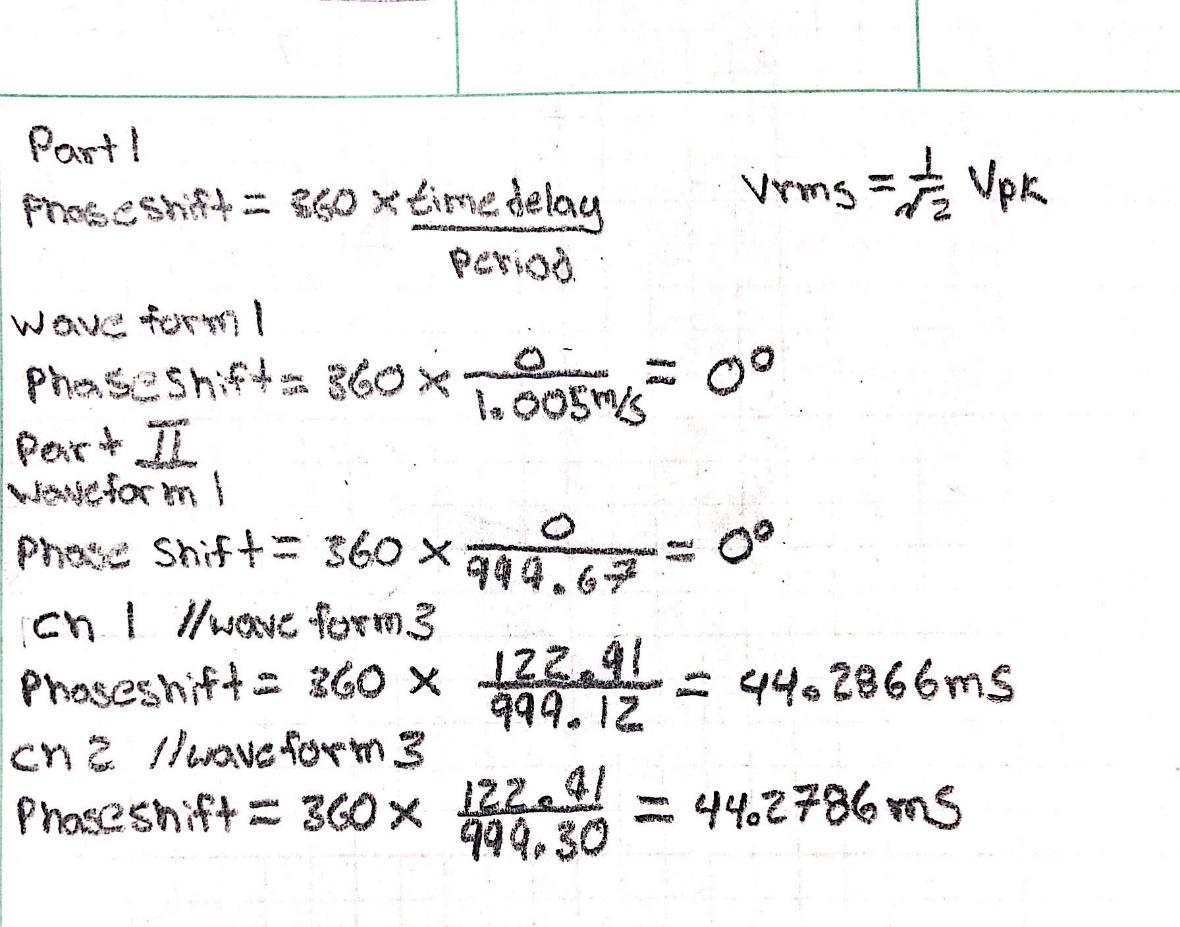 Part 1
Phase shift = 360 × time delay / Period
Vrms = 1/√2 Vpk
Wave form 1
Phase Shift = 360 × 0 / 1.005m/s = 0°
Part II
Waveform 1
Phase Shift = 360 × 0 / 999.67 = 0°
Ch 1 //wave form 3
Phaseshift = 360 × 122.91 / 999.12 = 44.2866ms
Ch 2 //waveform 3
Phaseshift = 360 × 122.91 / 999.30 = 44.2786ms